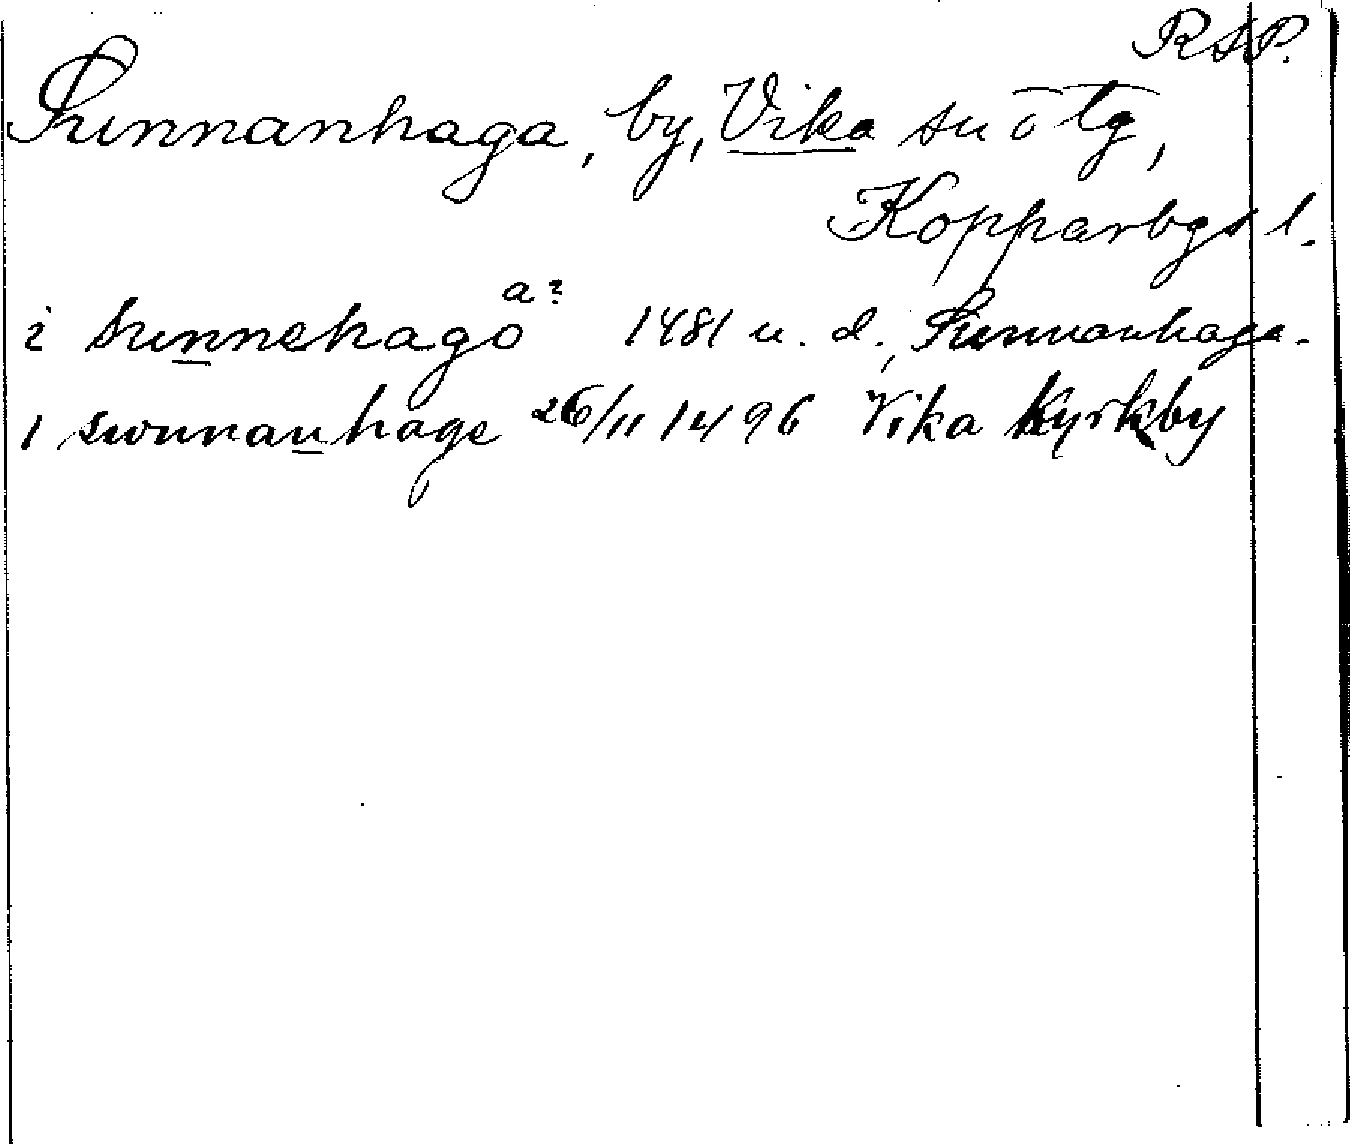 RAP.
Sunnanhaga, by, Vika sn o tg,
Kopparbgs l.
i sunnehago a? 1481 u. d., Sunnanhaga.
I swnnanhage 26/11 1496 Vika Kyrkby